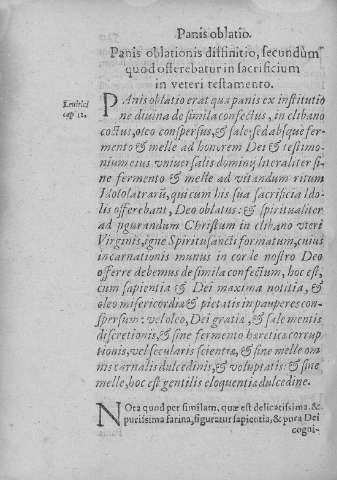 Panis oblatio.
Panis oblationis diffinitio, secundùm
quòd offerebatur in sacrificium
in veteri testamento.
Leuitici
cap 12.
PAnis oblatio erat qua panis ex institutio
ne diuina de simila confectus, in clibano
coctus, oleo conspersus, & sale: sed absque fer-
mento & melle ad honorem Dei & testimo-
nium eius vniuersalis dominij litteraliter si-
ne fermento & melle ad vitandum ritum
Idololatrarū, qui cum his sua sacrificia Ido-
lis offerebant, Deo oblatus: & spiritualiter
ad figurandum Christum in clibano vteri
Virginis, igne Spiritus sancti formatum, cuius
incarnationis munus in corde nostro Deo
offerre debemus de simila confectum, hoc est,
cum sapientia & Dei maxima notitia, &
oleo misericordiæ & pietatis in pauperes con-
spersum: vel oleo, Dei gratia, & sale mentis
discretionis, & sine fermento hæretica corrup
tionis, vel secularis scientiæ, & sine melle om
nis carnalis dulcedinis, & voluptatis: & sine
melle, hoc est gentilis eloquentiæ dulcedine.
NOta quod per similam, quæ est delicatissima, &
purissima farina, figuratur sapientia, & pura Dei
cogni-